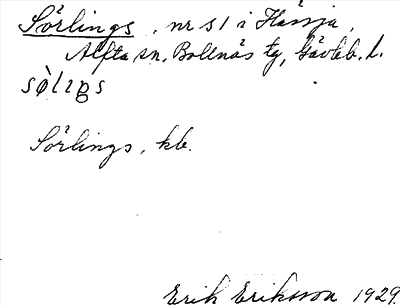 Sörlings, nr 51 i Hässja,
Alfta sn. Bollnäs tg, Gävleb. l.
sø̀lıgs
Sörlings, kb.
Erik Eriksson 1929.